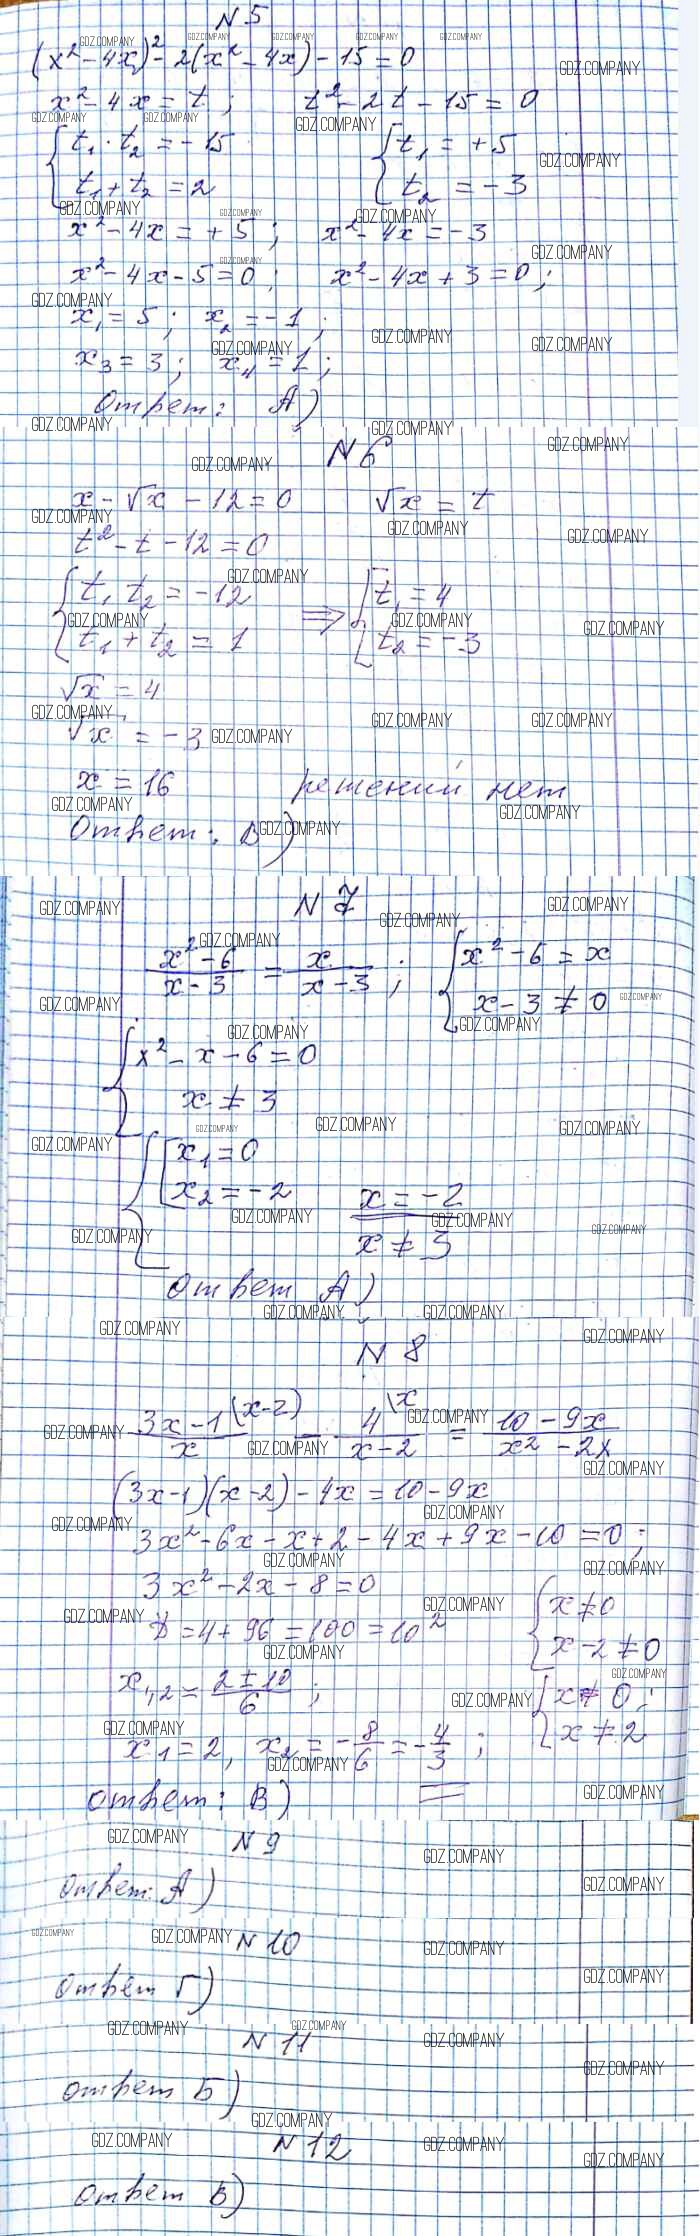 N 5
(x² - 4x)² - 2(x² - 4x) - 15 = 0
x² - 4x = t; t² - 2t - 15 = 0
t₁ · t₂ = - 15 t₁ = + 5
t₁ + t₂ = 2 t₂ = - 3
x² - 4x = + 5; x² - 4x = - 3
x² - 4x - 5 = 0; x² - 4x + 3 = 0;
x₁ = 5; x₂ = - 1;
x₃ = 3; x₄ = 1;
Ответ: А)
N 6
x - √x - 12 = 0 √x = t
t² - t - 12 = 0
t₁ t₂ = - 12 ⇒ t₁ = 4
t₁ + t₂ = 1 t₂ = - 3
√x = 4
√x = - 3
x = 16 решений нет
Ответ: В)
N 7
(x² - 6)/(x - 3) = x/(x - 3); x² - 6 = x
x - 3 ≠ 0
x² - x - 6 = 0
x ≠ 3
x₁ = 0
x₂ = - 2 x = - 2
x ≠ 3
Ответ А)
N 8
(3x - 1)/x \(x - 2) - 4/(x - 2) \x = (10 - 9x)/(x² - 2x)
(3x - 1)(x - 2) - 4x = 10 - 9x
3x² - 6x - x + 2 - 4x + 9x - 10 = 0;
3x² - 2x - 8 = 0
D = 4 + 96 = 100 = 10² x ≠ 0
x - 2 ≠ 0
x₁,₂ = (2 ± 10)/6; x ≠ 0;
x₁ = 2, x₂ = - 8/6 = - 4/3; x ≠ 2
Ответ: В)
N 9
Ответ: А)
N 10
Ответ Г)
N 11
Ответ Б)
N 12
Ответ В)
GDZ.COMPANY